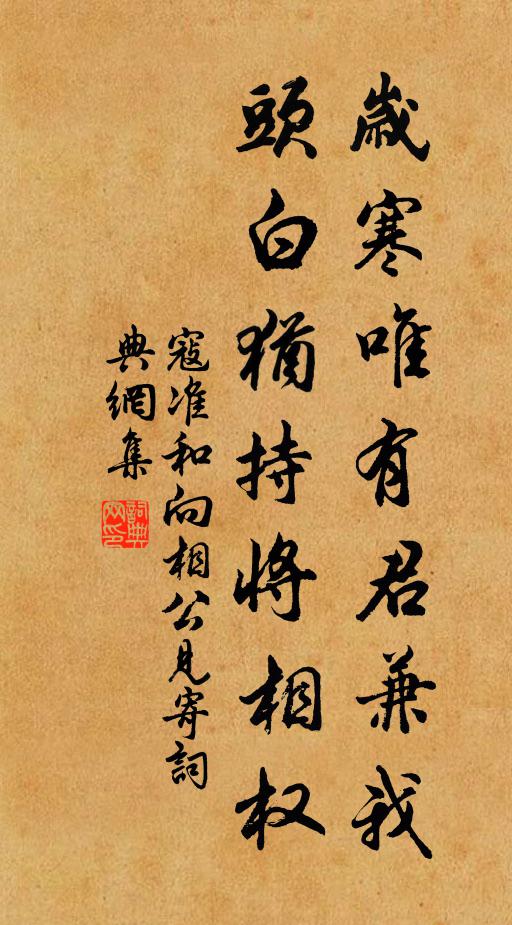 歲寒唯有君兼我
頭白猶持將相权
寇准和向相公見寄詞
典網集
詞典
网印